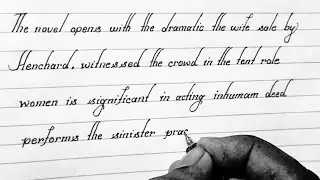 The novel opens with the dramatic the wife sale by
Henchard, witnessed the crowd in the tent role
women is significant in acting inhumam deed
performs the sinister prac